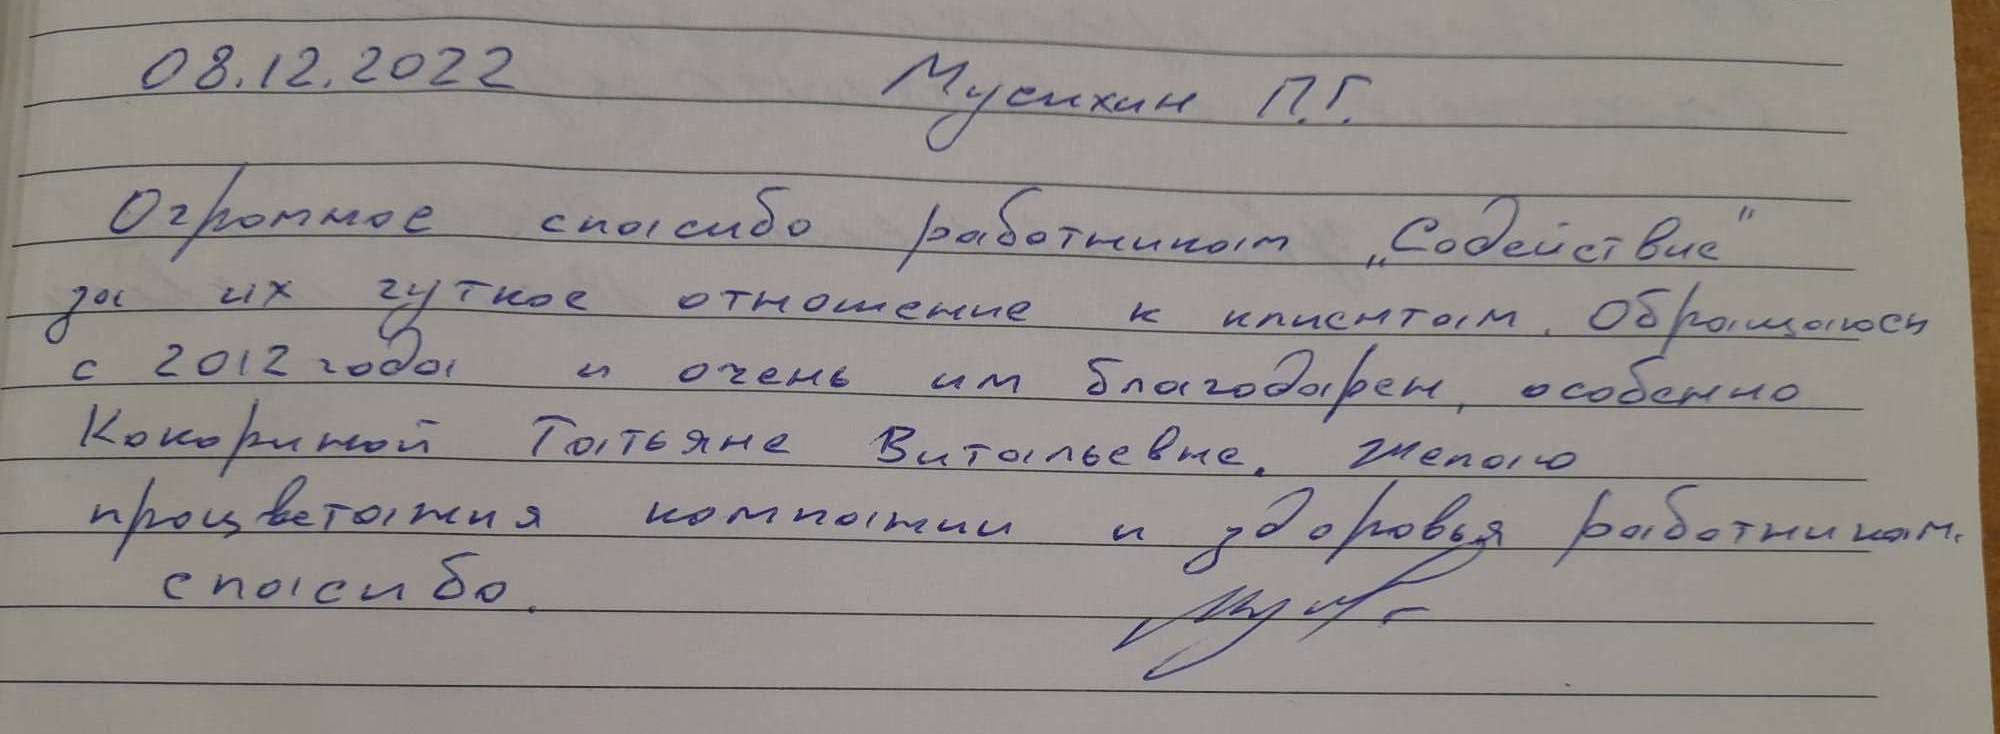 08.12.2022 Мусихин П.Г.
Огромное спасибо работникам „Содействие"
за их чуткое отношение к клиентам. Обращаюсь
с 2012 года и очень им благодарен, особенно
Кокориной Татьяне Витальевне. Желаю
процветания компании и здоровья работникам.
спасибо.